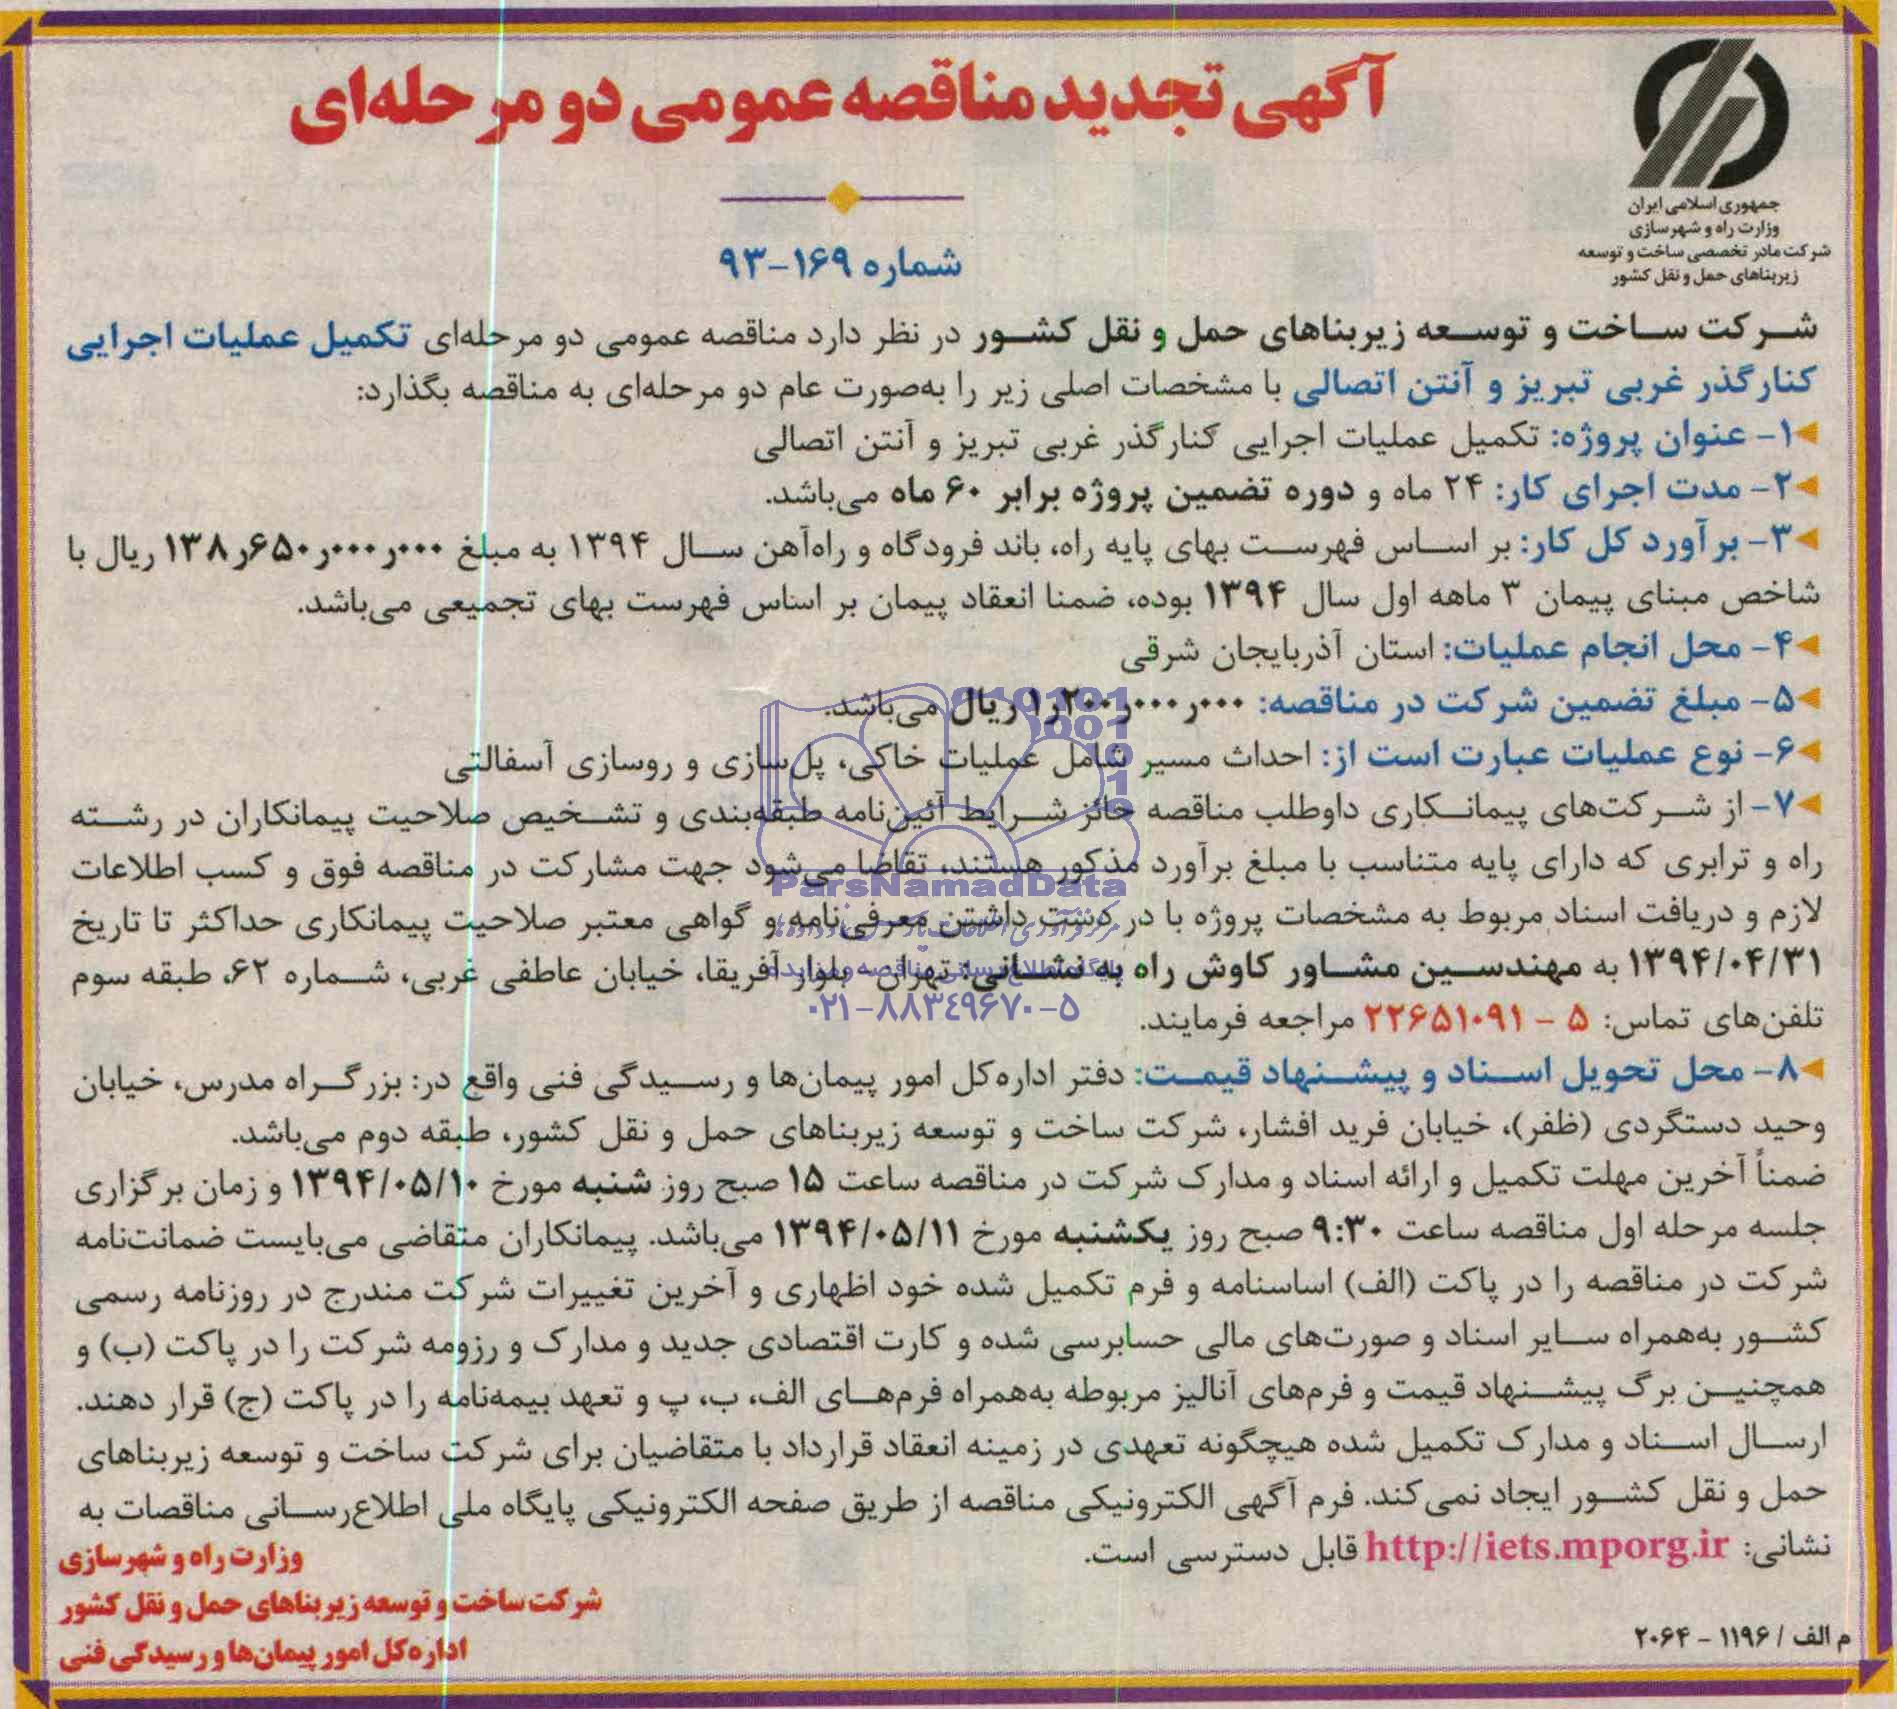 آگهی تجدید مناقصه عمومی دو مرحله‌ای
جمهوری اسلامی ایران
وزارت راه و شهرسازی
شرکت مادر تخصصی ساخت و توسعه
زیربناهای حمل و نقل کشور
شماره ۱۶۹-۹۳
شرکت ساخت و توسعه زیربناهای حمل و نقل کشور در نظر دارد مناقصه عمومی دو مرحله‌ای تکمیل عملیات اجرایی
کنارگذر غربی تبریز و آنتن اتصالی با مشخصات اصلی زیر را به‌صورت عام دو مرحله‌ای به مناقصه بگذارد:
۱- عنوان پروژه: تکمیل عملیات اجرایی کنارگذر غربی تبریز و آنتن اتصالی
۲- مدت اجرای کار: ۲۴ ماه و دوره تضمین پروژه برابر ۶۰ ماه می‌باشد.
۳- برآورد کل کار: بر اساس فهرست بهای پایه راه، باند فرودگاه و راه‌آهن سال ۱۳۹۴ به مبلغ ۱۳۸ر۶۵۰ر۰۰۰ر۰۰۰ ریال با
شاخص مبنای پیمان ۳ ماهه اول سال ۱۳۹۴ بوده، ضمنا انعقاد پیمان بر اساس فهرست بهای تجمیعی می‌باشد.
۴- محل انجام عملیات: استان آذربایجان شرقی
۵- مبلغ تضمین شرکت در مناقصه: ۱ر۲۰۰ر۰۰۰ر۰۰۰ ریال می‌باشد.
۶- نوع عملیات عبارت است از: احداث مسیر شامل عملیات خاکی، پل‌سازی و روسازی آسفالتی
۷- از شرکت‌های پیمانکاری داوطلب مناقصه حائز شرایط آئین‌نامه طبقه‌بندی و تشخیص صلاحیت پیمانکاران در رشته
راه و ترابری که دارای پایه متناسب با مبلغ برآورد مذکور هستند، تقاضا می‌شود جهت مشارکت در مناقصه فوق و کسب اطلاعات
لازم و دریافت اسناد مربوط به مشخصات پروژه با در دست داشتن معرفی‌نامه و گواهی معتبر صلاحیت پیمانکاری حداکثر تا تاریخ
۱۳۹۴/۰۴/۳۱ به مهندسین مشاور کاوش راه به نشانی: تهران - بلوار آفریقا، خیابان عاطفی غربی، شماره ۶۲، طبقه سوم
تلفن‌های تماس: ۵ - ۲۲۶۵۱۰۹۱ مراجعه فرمایند.
۸- محل تحویل اسناد و پیشنهاد قیمت: دفتر اداره‌کل امور پیمان‌ها و رسیدگی فنی واقع در: بزرگراه مدرس، خیابان
وحید دستگردی (ظفر)، خیابان فرید افشار، شرکت ساخت و توسعه زیربناهای حمل و نقل کشور، طبقه دوم می‌باشد.
ضمناً آخرین مهلت تکمیل و ارائه اسناد و مدارک شرکت در مناقصه ساعت ۱۵ صبح روز شنبه مورخ ۱۳۹۴/۰۵/۱۰ و زمان برگزاری
جلسه مرحله اول مناقصه ساعت ۹:۳۰ صبح روز یکشنبه مورخ ۱۳۹۴/۰۵/۱۱ می‌باشد. پیمانکاران متقاضی می‌بایست ضمانت‌نامه
شرکت در مناقصه را در پاکت (الف) اساسنامه و فرم تکمیل شده خود اظهاری و آخرین تغییرات شرکت مندرج در روزنامه رسمی
کشور به‌همراه سایر اسناد و صورت‌های مالی حسابرسی شده و کارت اقتصادی جدید و مدارک و رزومه شرکت را در پاکت (ب) و
همچنین برگ پیشنهاد قیمت و فرم‌های آنالیز مربوطه به‌همراه فرم‌های الف، ب، پ و تعهد بیمه‌نامه را در پاکت (ج) قرار دهند.
ارسال اسناد و مدارک تکمیل شده هیچگونه تعهدی در زمینه انعقاد قرارداد با متقاضیان برای شرکت ساخت و توسعه زیربناهای
حمل و نقل کشور ایجاد نمی‌کند. فرم آگهی الکترونیکی مناقصه از طریق صفحه الکترونیکی پایگاه ملی اطلاع‌رسانی مناقصات به
نشانی: http://iets.mporg.ir قابل دسترسی است.
وزارت راه و شهرسازی
شرکت ساخت و توسعه زیربناهای حمل و نقل کشور
اداره‌کل امور پیمان‌ها و رسیدگی فنی
م الف / ۱۱۹۶ - ۲۰۶۴
010101
001
10
1
0
ParsNamadData
پایگاه اطلاع رسانی مناقصه و مزایده
۰۲۱-۸۸۳۴۹۶۷۰-۵